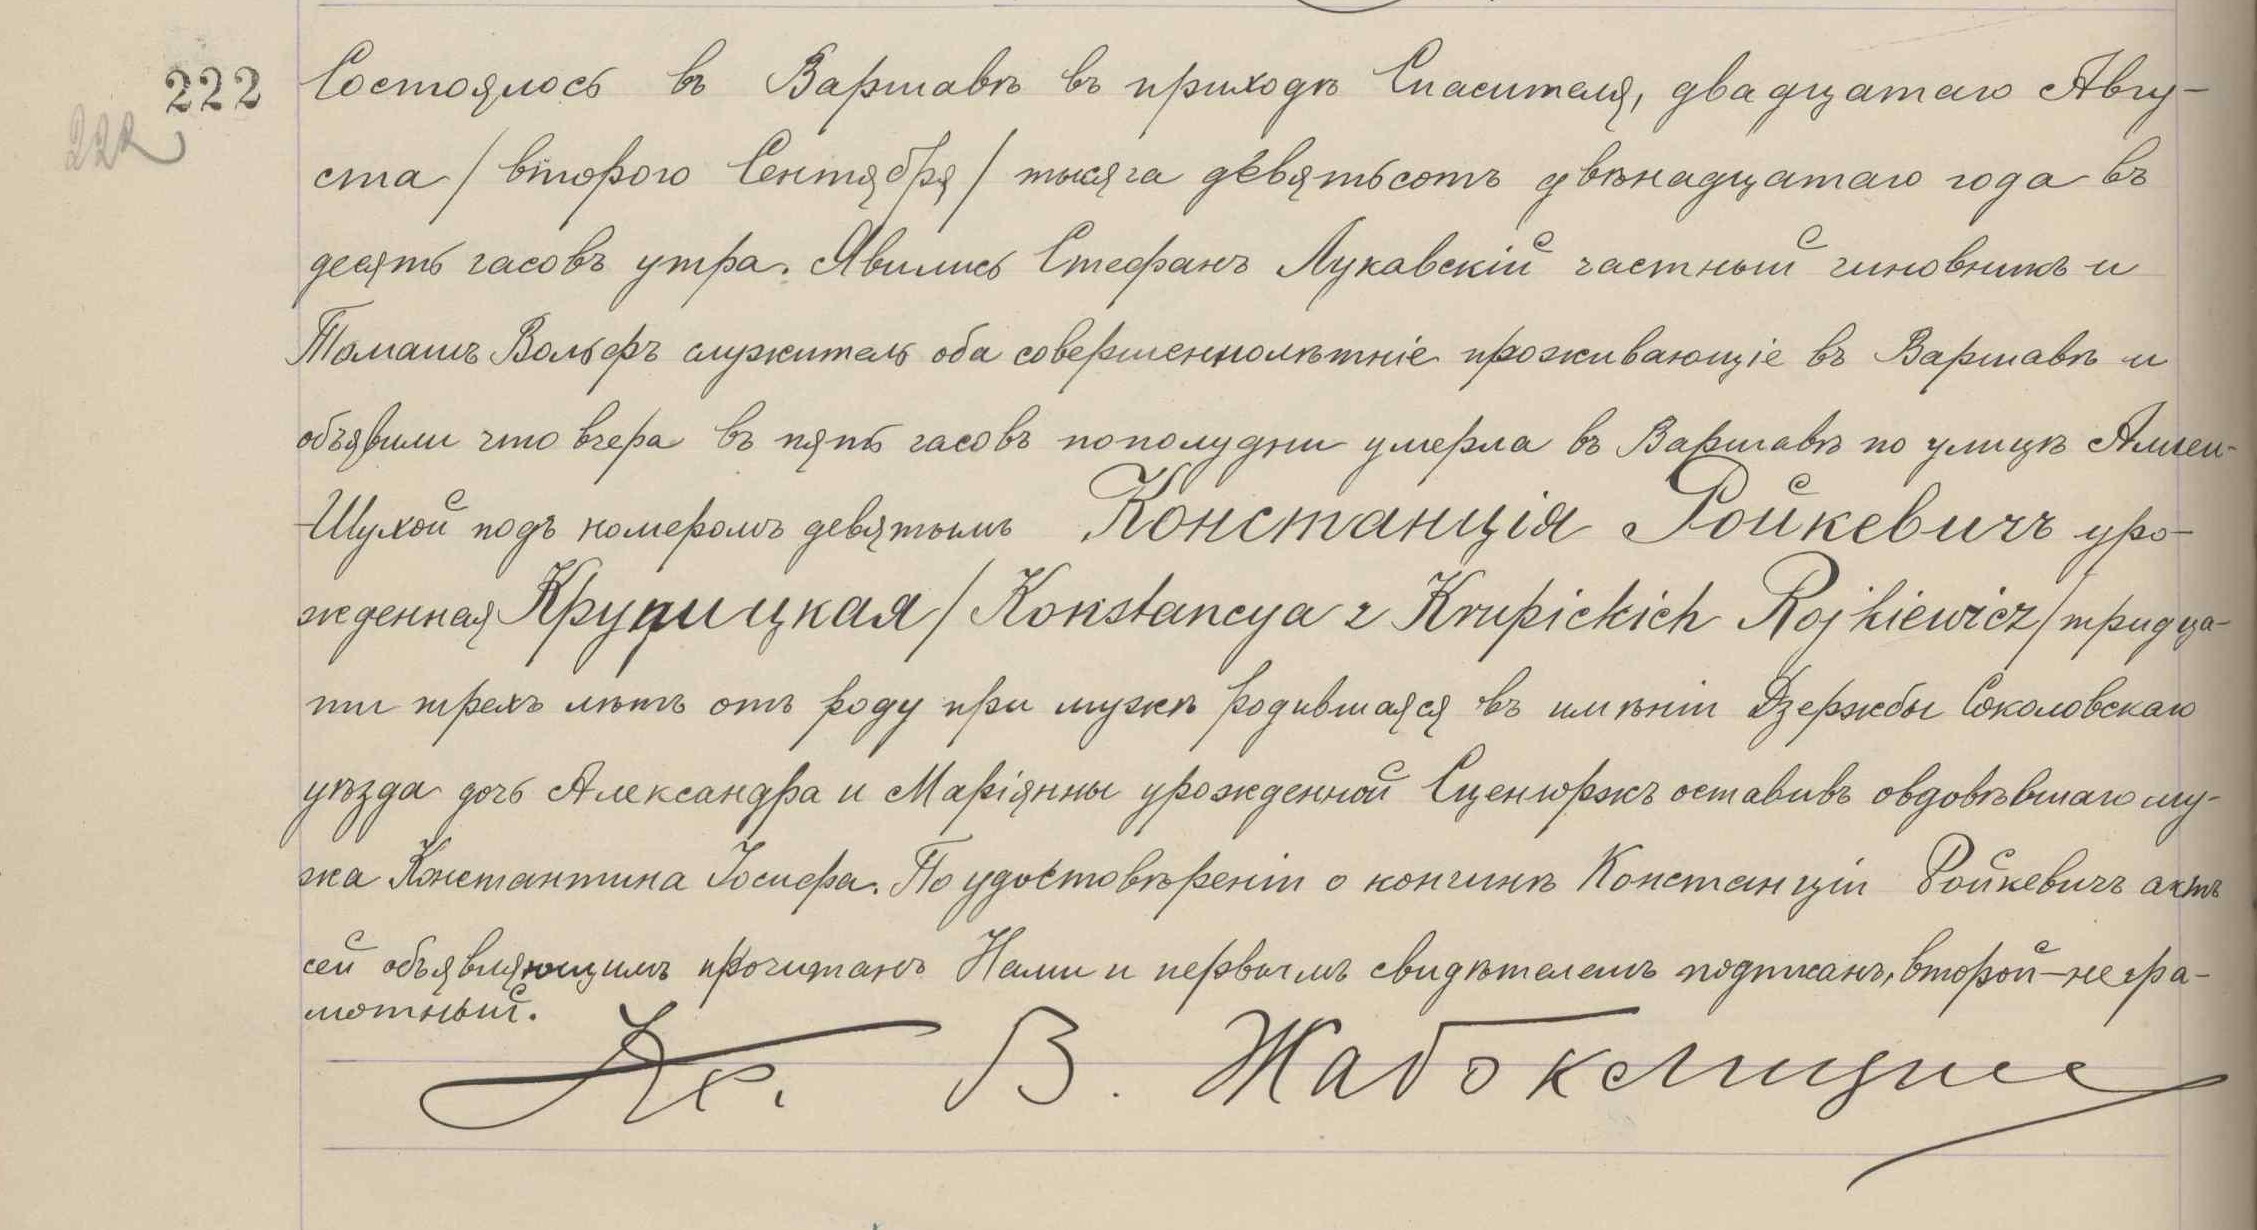 222
222
Состоялось въ Варшавѣ въ приходѣ Спасителя, двадцатаго Авгу-
ста / второго Сентября / тысяча девятьсотъ двѣнадцатаго года въ
десять часовъ утра. Явились Стефанъ Лукавскій частный чиновникъ и
Томашъ Вольфъ служитель оба совершеннолѣтніе проживающіе въ Варшавѣ и
объявили что вчера въ пять часовъ пополудни умерла въ Варшавѣ по улицѣ Аллеи-
-Шухой подъ номеромъ девятымъ Констанція Ройкевичъ уро-
жденная Крупицкая / Konstancya z Krupickich Rojkiewicz / тридца-
ти трехъ лѣтъ отъ роду при мужѣ родившаяся въ имѣніи Дзержбы Соколовскаго
уѣзда дочь Александра и Маріянны урожденной Сценюржъ оставивъ овдовѣвшаго му-
жа Константина Іосифа. По удостовѣреніи о кончинѣ Констанціи Ройкевичъ актъ
сей объявляющимъ прочитанъ Нами и первымъ свидѣтелемъ подписанъ, второй-негра-
мотный.
Кс. В. Жабоклицкій